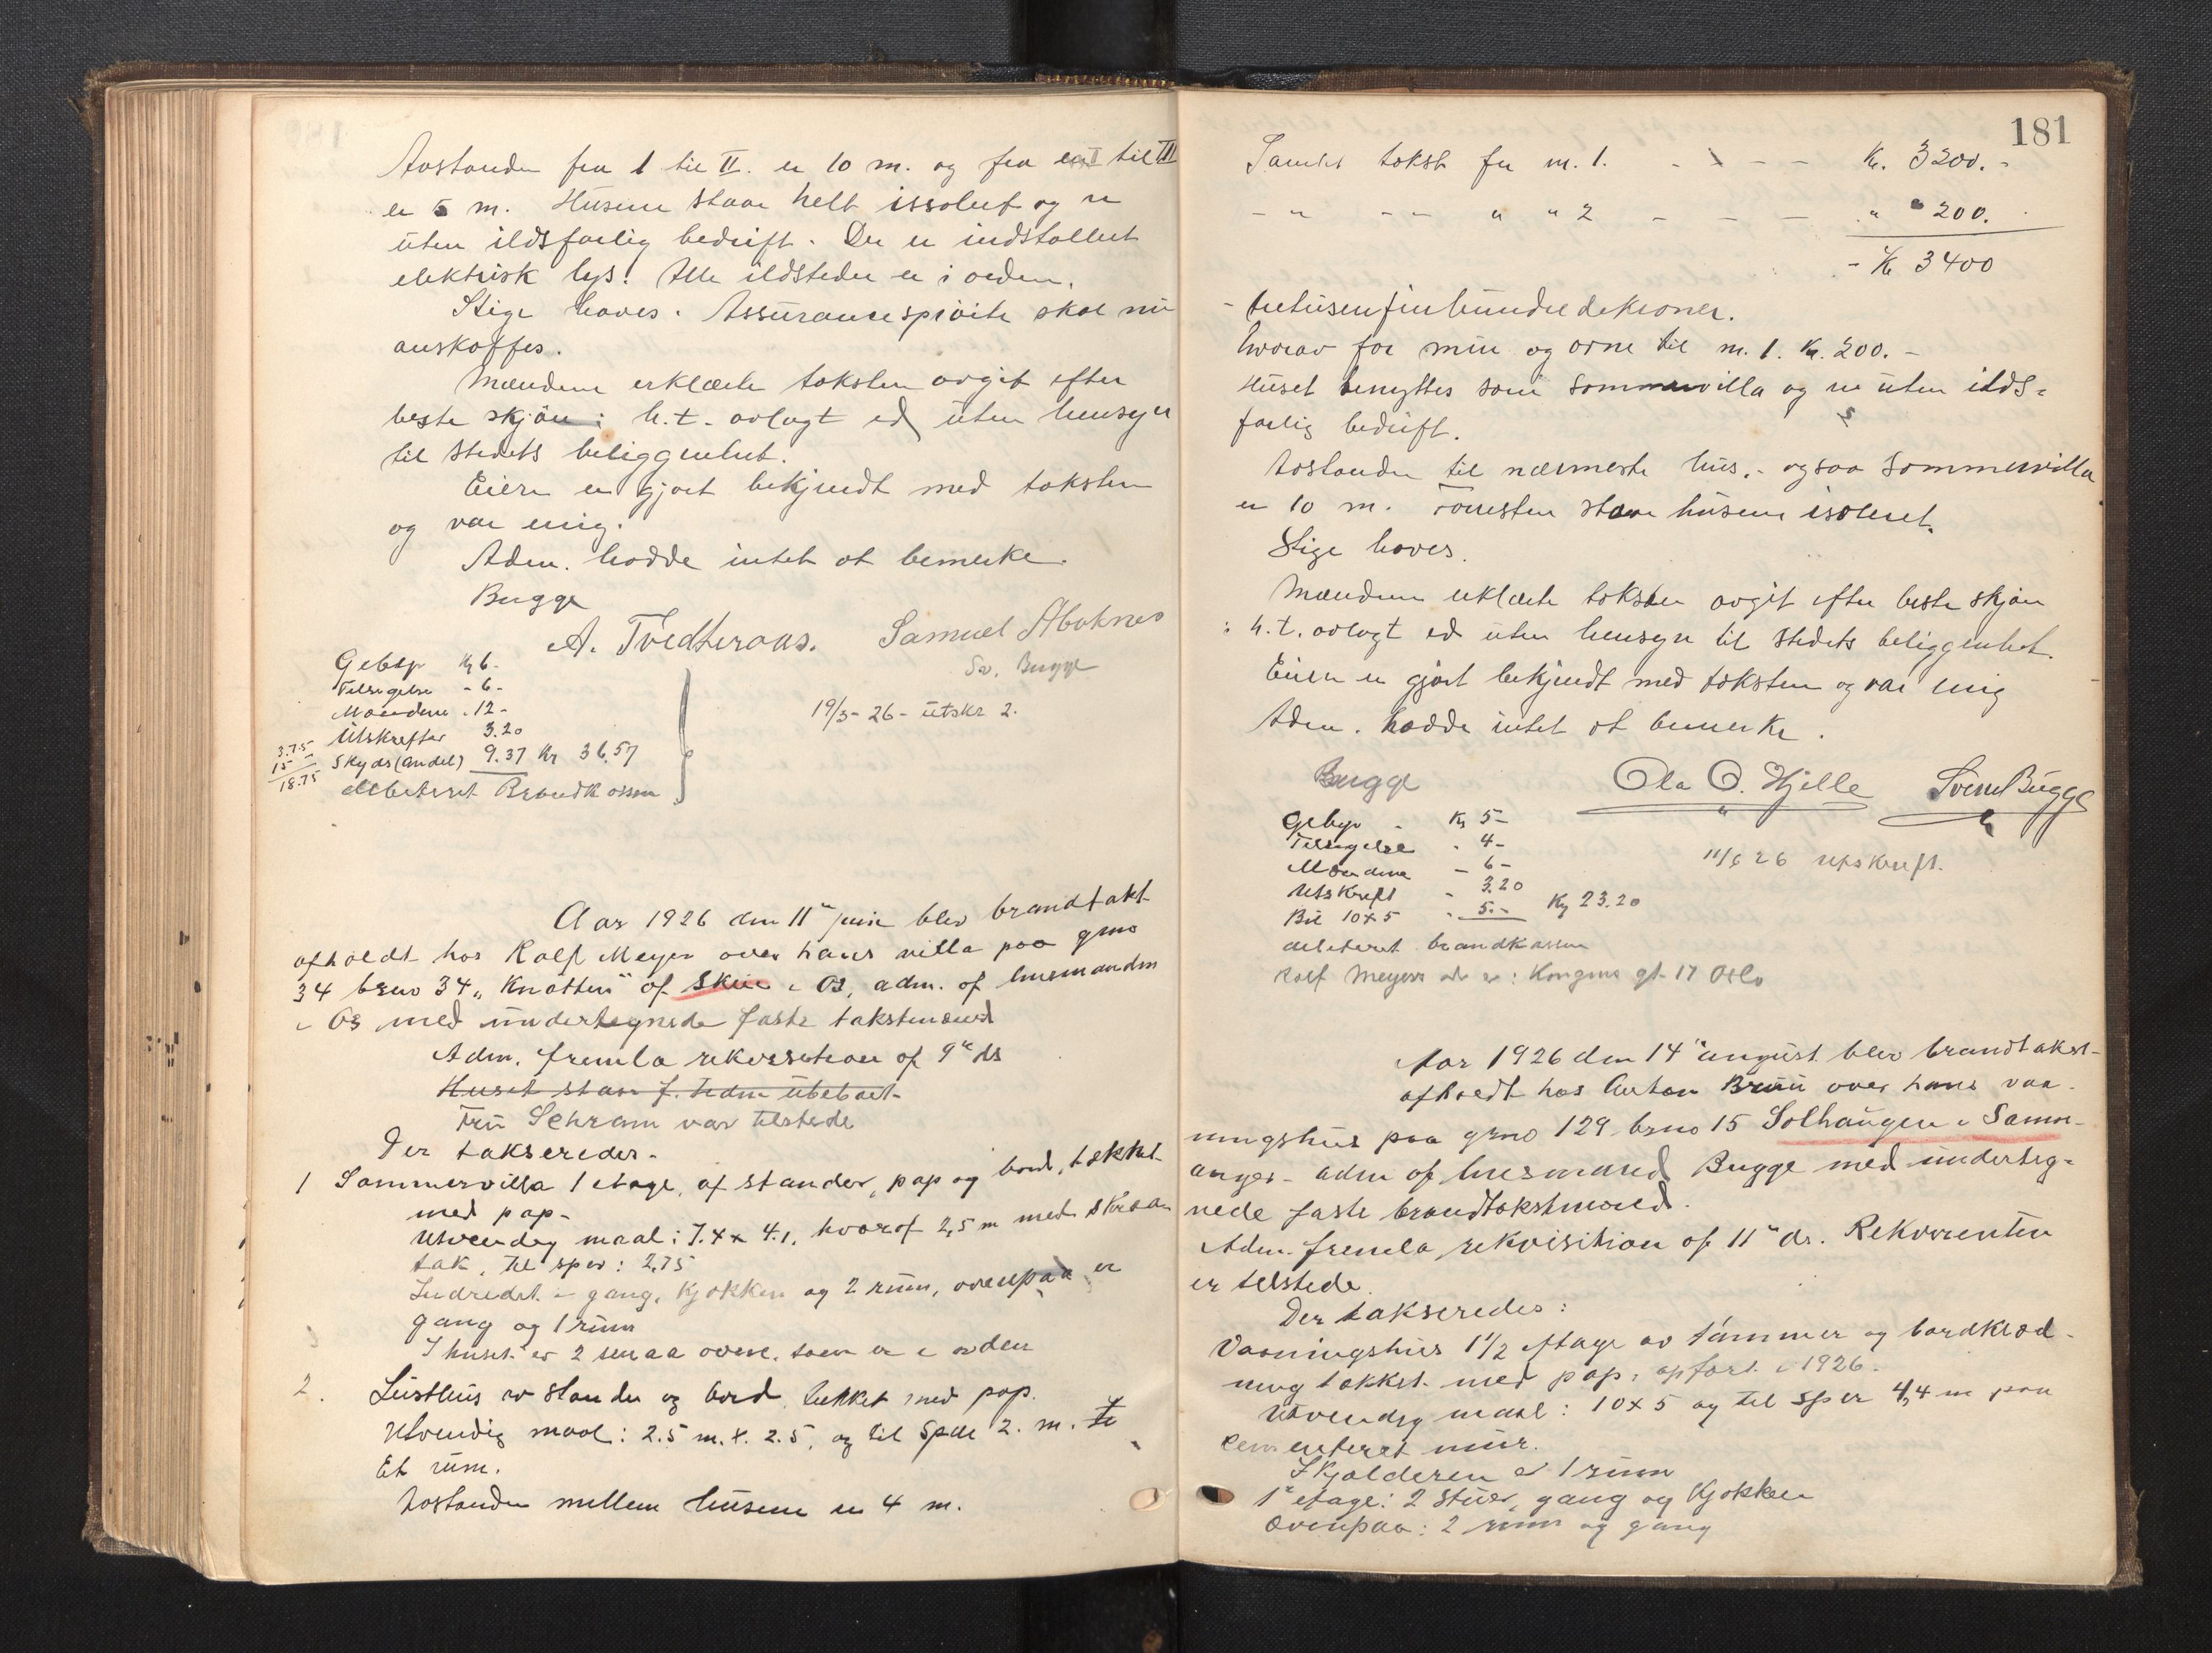 Avstanden fra 1 til II. er 10 m. og fra II til III
er 5 m. Husene staar helt issolert og er
uten ildsfarlig bedrift. Der er indstalleret
elektrisk lys. Alle ildsteder er i orden.
Stige haves. Assurancesprøite skal nu
anskaffes.
Mændene erklærte taksten avgit efter
beste skjøn: h.t. avlagt ed uten hensyn
til stedets beliggenhet.
Eieren er gjort bekjendt med taksten
og var enig.
Adm. hadde intet at bemerke.
Bugge
A. Tvedteraas. Samuel Aboknes
Sv. Bugge
Gebyr Kr 6-
Tilsigelse - 6-
Mændene - 12-
Utskrefter 3.20
Skyds (andel) 9.37 Kr 36,57
3.75
15
18.75
debeteret Brandkassen
19/5-26- utskr 2.
Aar 1926 den 11" juni blev brandtakt
afholdt hos Rolf Meyer over hans villa paa gno
34 bno 34 "Knatten" af Skeie i Os, adm. af lensmanden
i Os med undertegnede faste takstmænd
Adm. fremla rekvisition af 9" ds
Huset staar f. tiden ubeboet-
Fru Schram var tilstede
Der takseredes-
1 Sommervilla 1 etage, af stander, pap og bord, tækket
med pap-
Utvendig maal: 7.4 x 4.1, hvoraf 2,5 m med skraa
tak, til sper: 2,75
Indredet i gang, kjøkken og 2 rum, ovenpaa er
gang og 1 rum
I huset er 2 smaa ovne, som er i orden
2. Lusthus av stander og bord, tækket med pap.
Utvendig maal: 2.5 m. x. 2.5, og til Sper 2. m.
Et rum.
Avstanden mellem husene er 4 m.
181
Samlet takst for nr. 1. - - - - Kr. 3200.-
-"- -"- " " 2 - - - " 200.
- Kr 3400
- tretusenfirehundredekroner.
hvorav for mur og ovne til nr. 1. Kr. 200.-
Huset benyttes som sommervilla og er uten ilds=
farlig bedrift.
Avstanden til nærmeste hus,- ogsaa sommervilla
er 10 m. Forresten staar husene isoleret.
Stige haves.
Mændene erklærte taksten avgit efter beste skjøn
: h.t. avlagt ed uten hensyn til stedets beliggenhet.
Eieren er gjort bekjendt med taksten og var enig
Adm. hadde intet at bemerke.
Bugge Ola O. Hjelle Sverre Bugge
Gebyr - Kr 5-
Tilsigelse - 4-
Mændene - 6-
Utskreft - 3.20
Bil 10x5 - 5.- Kr 23.20
11/6 26 utskreft.
debeteret brandkassen
Rolf Meyers adr er: Kongens gt. 17 Oslo
Aar 1926 den 14" august blev brandtakst-
afholdt hos Anton Bruu over hans vaa-
ningshus paa gno 129 bno 15 Solhaugen i Samn-
anger- adm af lensmand Bugge med underteg-
nede faste brandtakstmænd.
Adm. fremla rekvisition af 11" ds. Rekvirenten
er tilstede.
Der takseredes:
Vaaningshus 1 1/2 etage av tømmer og bordklæd-
ning tækket med pap, opført i 1926.
Utvendig maal: 10 x 5 og til sper 4,4 m paa
cementeret mur.
I kjælderen er 1 rum
1" etage: 2 stuer, gang og kjøkken
Ovenpaa: 2 rum og gang